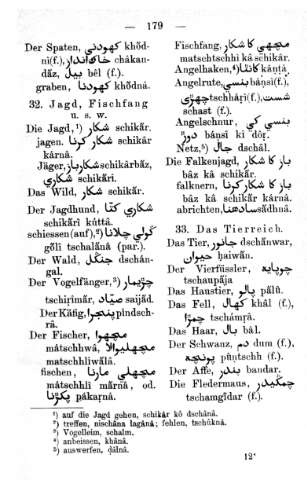 — 179 —
Der Spaten, کھودنی khôd-
nî(f.), châkan-
dâz, بیل bêl (f.).
graben, کھودنا khôdnâ.
32. Jagd, Fischfang
u. s. w.
Die Jagd,¹) شکار schikâr.
jagen. شکار کرنا schikâr
kârnâ.
Jäger, شکارباز schikârbâz,
شکاری schikâri.
Das Wild, شکار schikâr.
Der Jagdhund, شکاری کتا
schikâri kúttâ.
schiessen(auf),²) گولی چلانا
gôlî tschalânâ (par.).
Der Wald, جنگل dschân-
gal.
Der Vogelfänger,³) چڑیمار
tschirimâr, صیاد saijâd.
Der Käfig, پنجرا pindsch-
râ.
Der Fischer, مچھوا
mâtschhwâ, مچھلیوالا
matschhlîwâlâ.
fischen, مچھلی مارنا
mâtschhlî mârnâ, od.
پکڑنا pâkarnâ.
Fischfang, مچھی کا شکار
matschtschhi kâ schikâr.
Angelhaken,⁴) کانٹا kântâ.
Angelrute, بنسی bânsî(f.),
چھڑی tschhârî(f.), شست
schast (f.).
Angelschnur, بنسی کی
ڈور bânsî ki dôr.
Netz,⁵) جال dschâl.
Die Falkenjagd, باز کا شکار
bâz kâ schikâr.
falknern, باز کا شکار کرنا
bâz kâ schikâr kârnâ.
abrichten, سادھنا sâdhnâ.
33. Das Tierreich.
Das Tier, جانور dschânwar,
حیوان haiwân.
Der Vierfüssler, چوپایہ
tschaupâja
Das Haustier, پالو pâlû.
Das Fell, کھال khâl (f.),
چمڑا tschâmrâ.
Das Haar, بال bâl.
Der Schwanz, دم dum (f.),
پونچھ pûntschh (f.).
Der Affe, بندر bandar.
Die Fledermaus, چمگیدڑ
tschamgîdar (f.).
¹) auf die Jagd gehen, schikâr kô dschânâ.
²) treffen, nischâna lagânâ; fehlen, tschûknâ.
³) Vogelleim, schalm.
⁴) anbeissen, khânâ.
⁵) auswerfen, dâlnâ.
12*